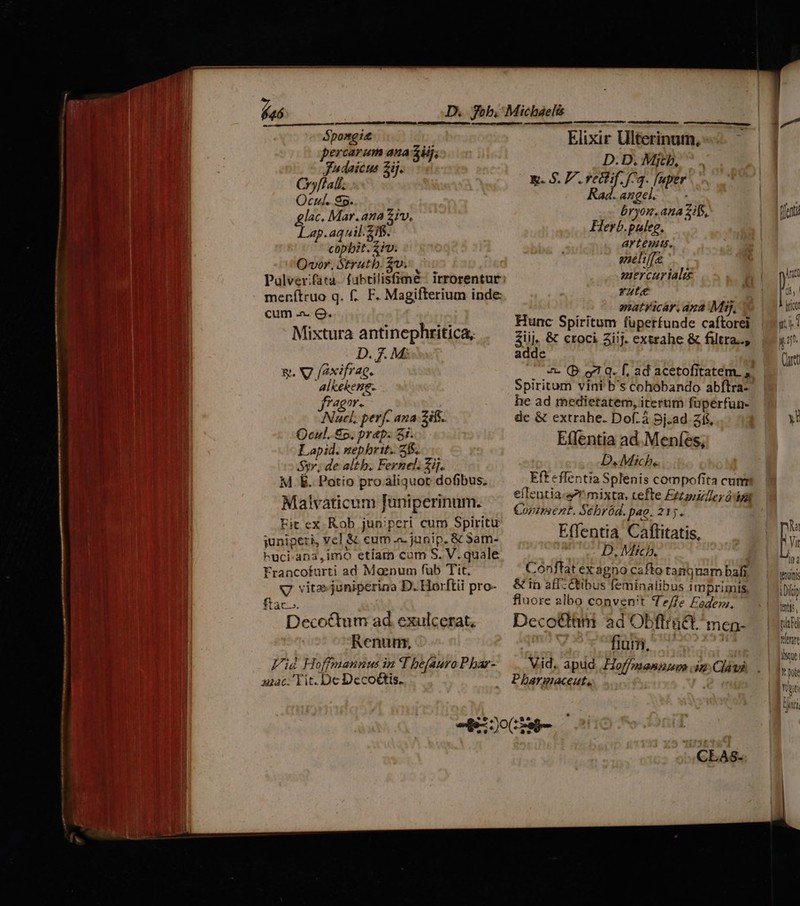 646 D. Joh. Michaelis
Spongiæ
percarum ana ʒiij.
Judaicus ʒij.
Cryſtall.
Ocul. ♋.
glac. Mar. ana ʒiv.
Lap. aquil. ʒiß.
cophit. ʒiv.
Ovor. Struth. ʒv.
Pulveriſata ſubtiliſſimè irrorentur
menſtruo q. ſ. F. Magiſterium inde
cum
Mixtura antinephritica,
D. J. M.
℞. ▽ ſaxifrag.
alkekeng.
fragor.
Nucl. perſ. ana ℥iß.
Ocul. ♋. præp. ʒi.
Lapid. nephrit. ʒß.
Syr. de alth. Fernel. ℥ij.
M. F. Potio pro aliquot doſibus.
Malvaticum Juniperinum.
Fit ex Rob juniperi cum Spiritu
juniperi, vel & cum junip. & Sam-
buciana, imò etiam cum S. V. quale
Francofurti ad Mœnum ſub Tit.
▽ vitæ juniperina D. Horſtii pro-
ſtat.
Decoctum ad exulcerat.
Renum,
Vid. Hoffmannus in Theſauro Phar-
mac. Tit. De Decoctis.
Elixir Ulterinum,
D. D. Mich.
℞. S. V. rectif. ſ. q. ſuper
Rad. angel.
bryon. ana ℥iß,
Herb. puleg.
artemis.
meliſſæ
mercurialis
rutæ
matricar. ana Mij,
Hunc Spiritum ſuperfunde caſtorei
ʒiij. & croci ʒiij. extrahe & filtra.,
adde
q. ſ. ad acetoſitatem.,
Spiritum vini b's cohobando abſtra-
he ad medietatem, iterum ſuperfun-
de & extrahe. Doſ. à ℈j. ad ʒß,
Eſſentia ad Menſes,
D. Mich.
Eſt eſſentia Splenis compoſita cum
eſſentia mixta, teſte
Comment. Schröd. pag. 215.
Eſſentia Caſtitatis,
D. Mich.
Conſtat ex agno caſto tanquam baſi,
& in affectibus feminalibus imprimis,
fluore albo convenit Teſte Eodem.
Decoctum ad Obſtruct. men-
ſium,
Vid. apud Hoffmannum in Clavi
Pharmaceut.
CLAS-